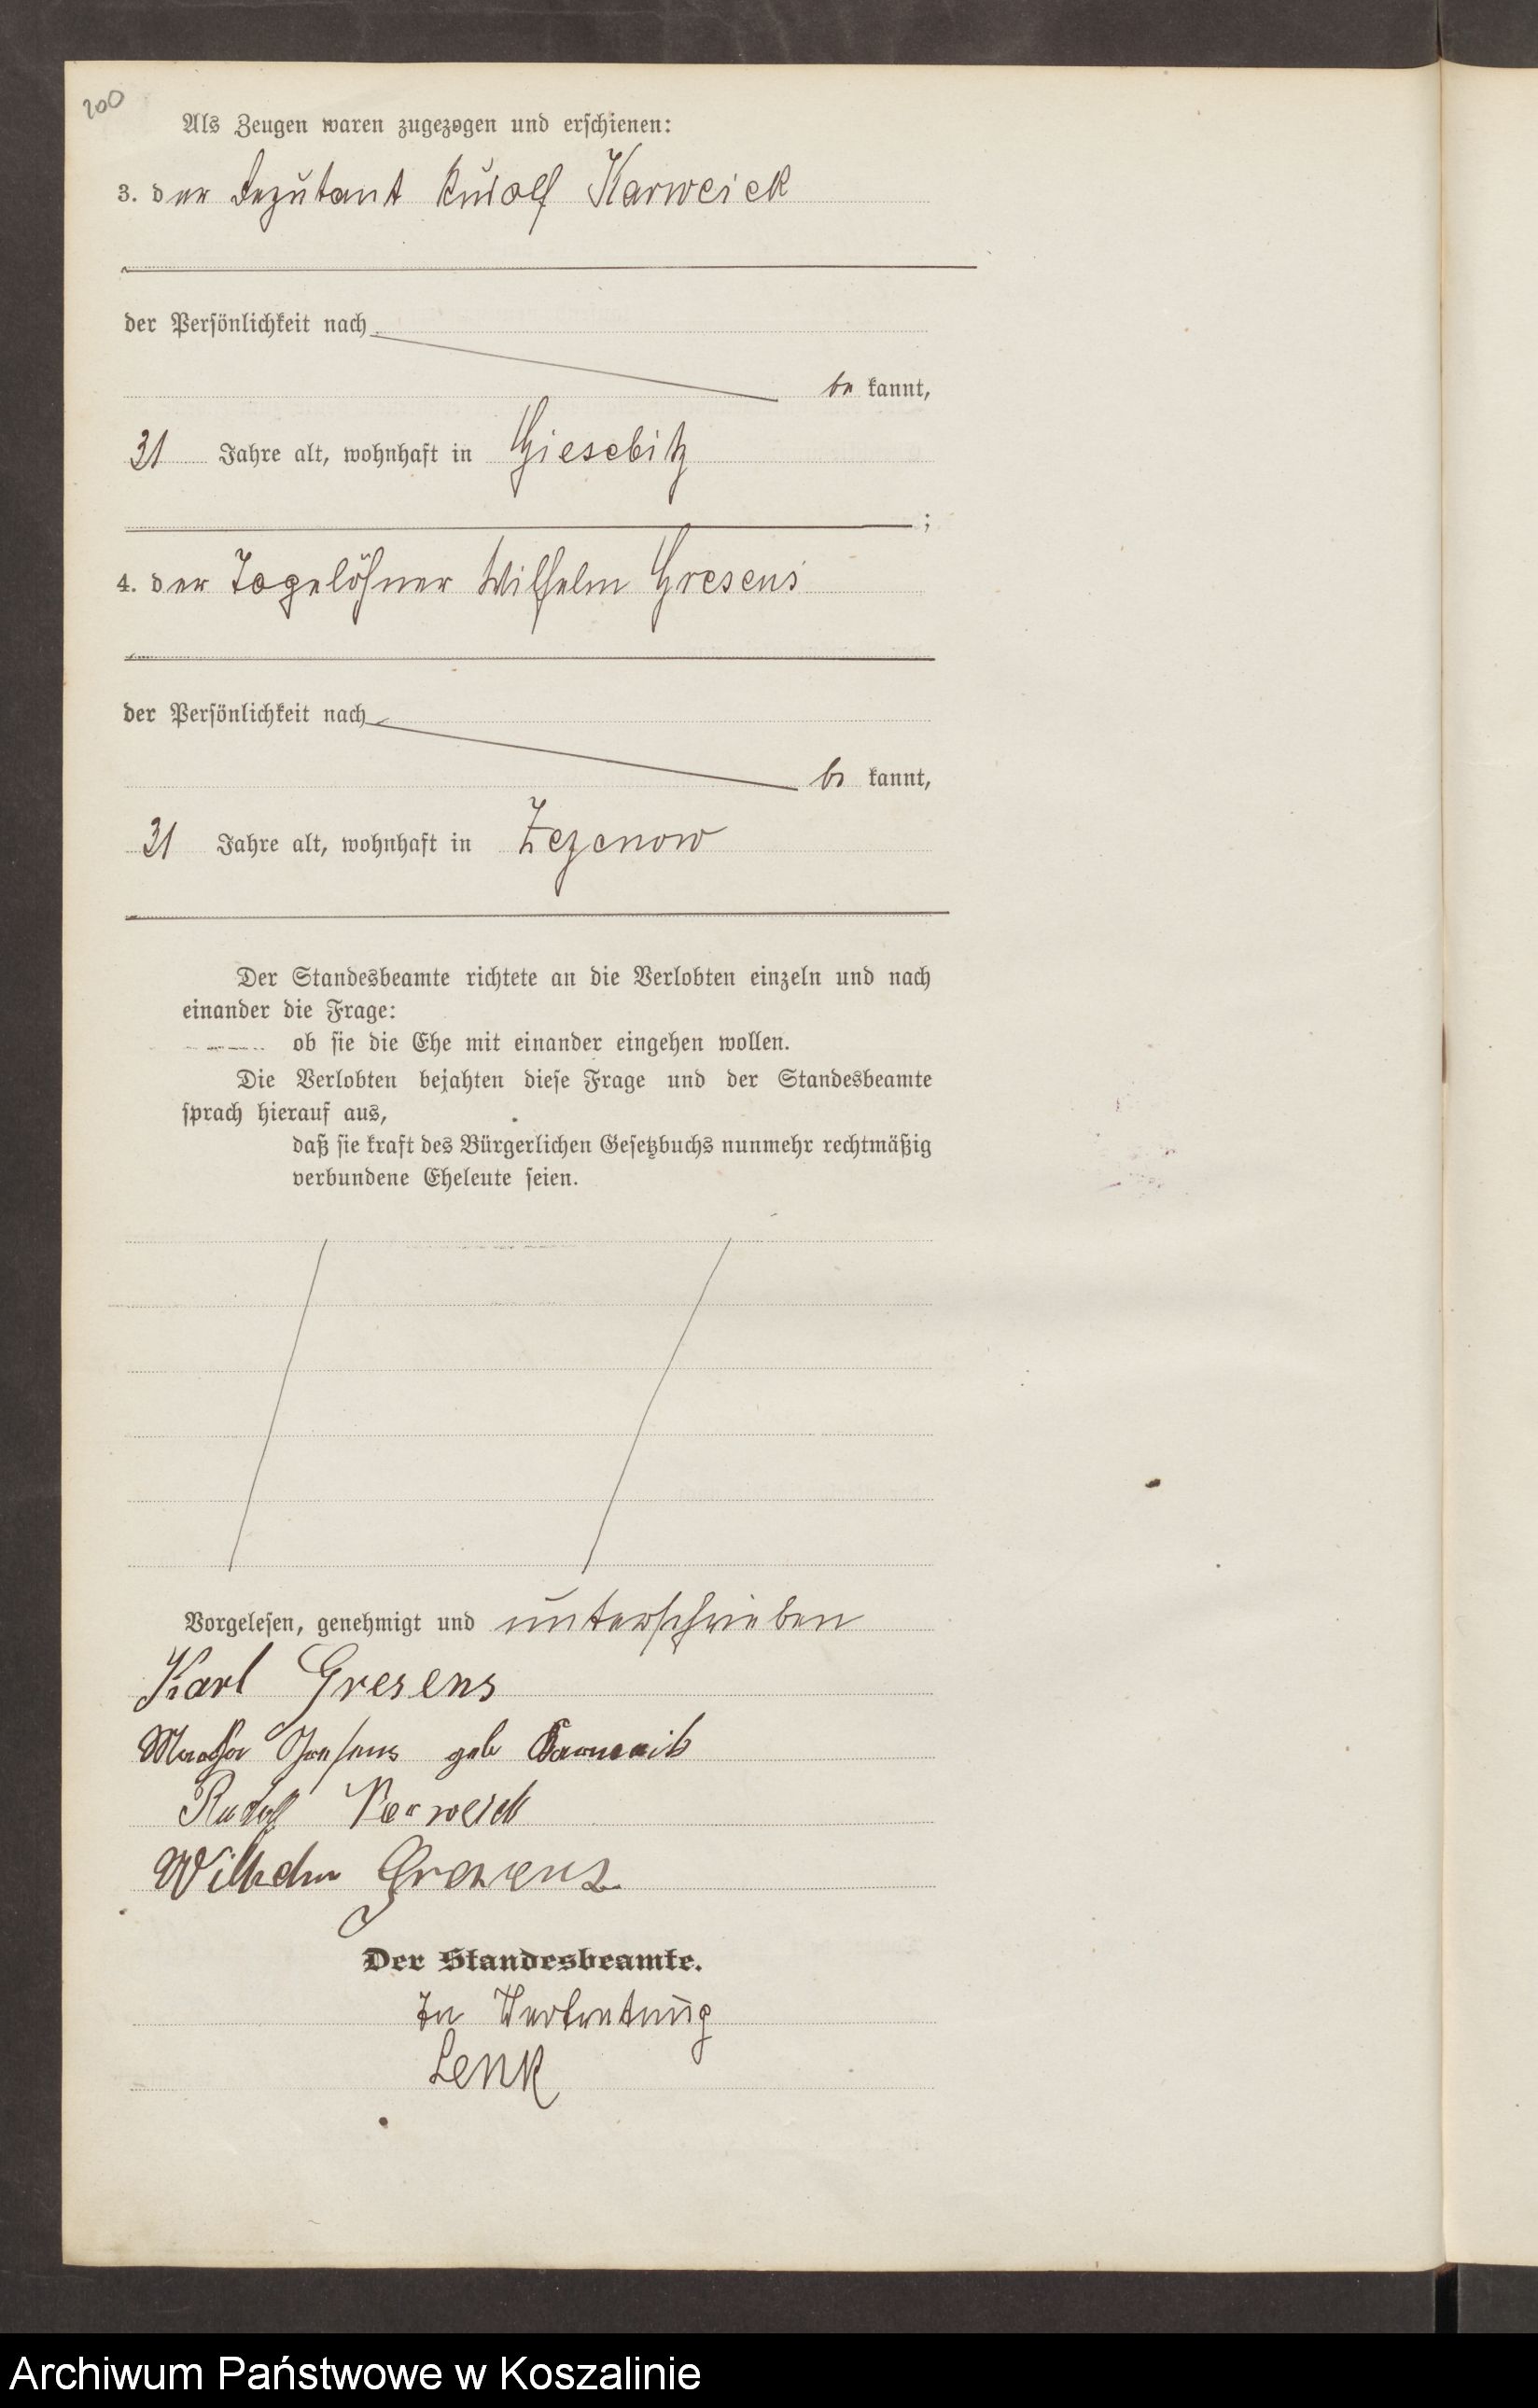 200
Als Zeugen waren zugezogen und erschienen:
3. der Deputant Rudolf Karweick
der Persönlichkeit nach
be kannt,
31 Jahre alt, wohnhaft in Giesebitz
;
4. der Tagelöhner Wilhelm Gresens
der Persönlichkeit nach
be kannt,
31 Jahre alt, wohnhaft in Zezenow
Der Standesbeamte richtete an die Verlobten einzeln und nach
einander die Frage:
ob sie die Ehe mit einander eingehen wollen.
Die Verlobten bejahten diese Frage und der Standesbeamte
sprach hierauf aus,
daß sie kraft des Bürgerlichen Gesetzbuchs nunmehr rechtmäßig
verbundene Eheleute seien.
Vorgelesen, genehmigt und unterschrieben
Karl Gresens
Martha Gresens geb
Rudolf Karweick
Wilhelm Gresens
Der Standesbeamte.
In Vertretung
Lenk
Archiwum Państwowe w Koszalinie